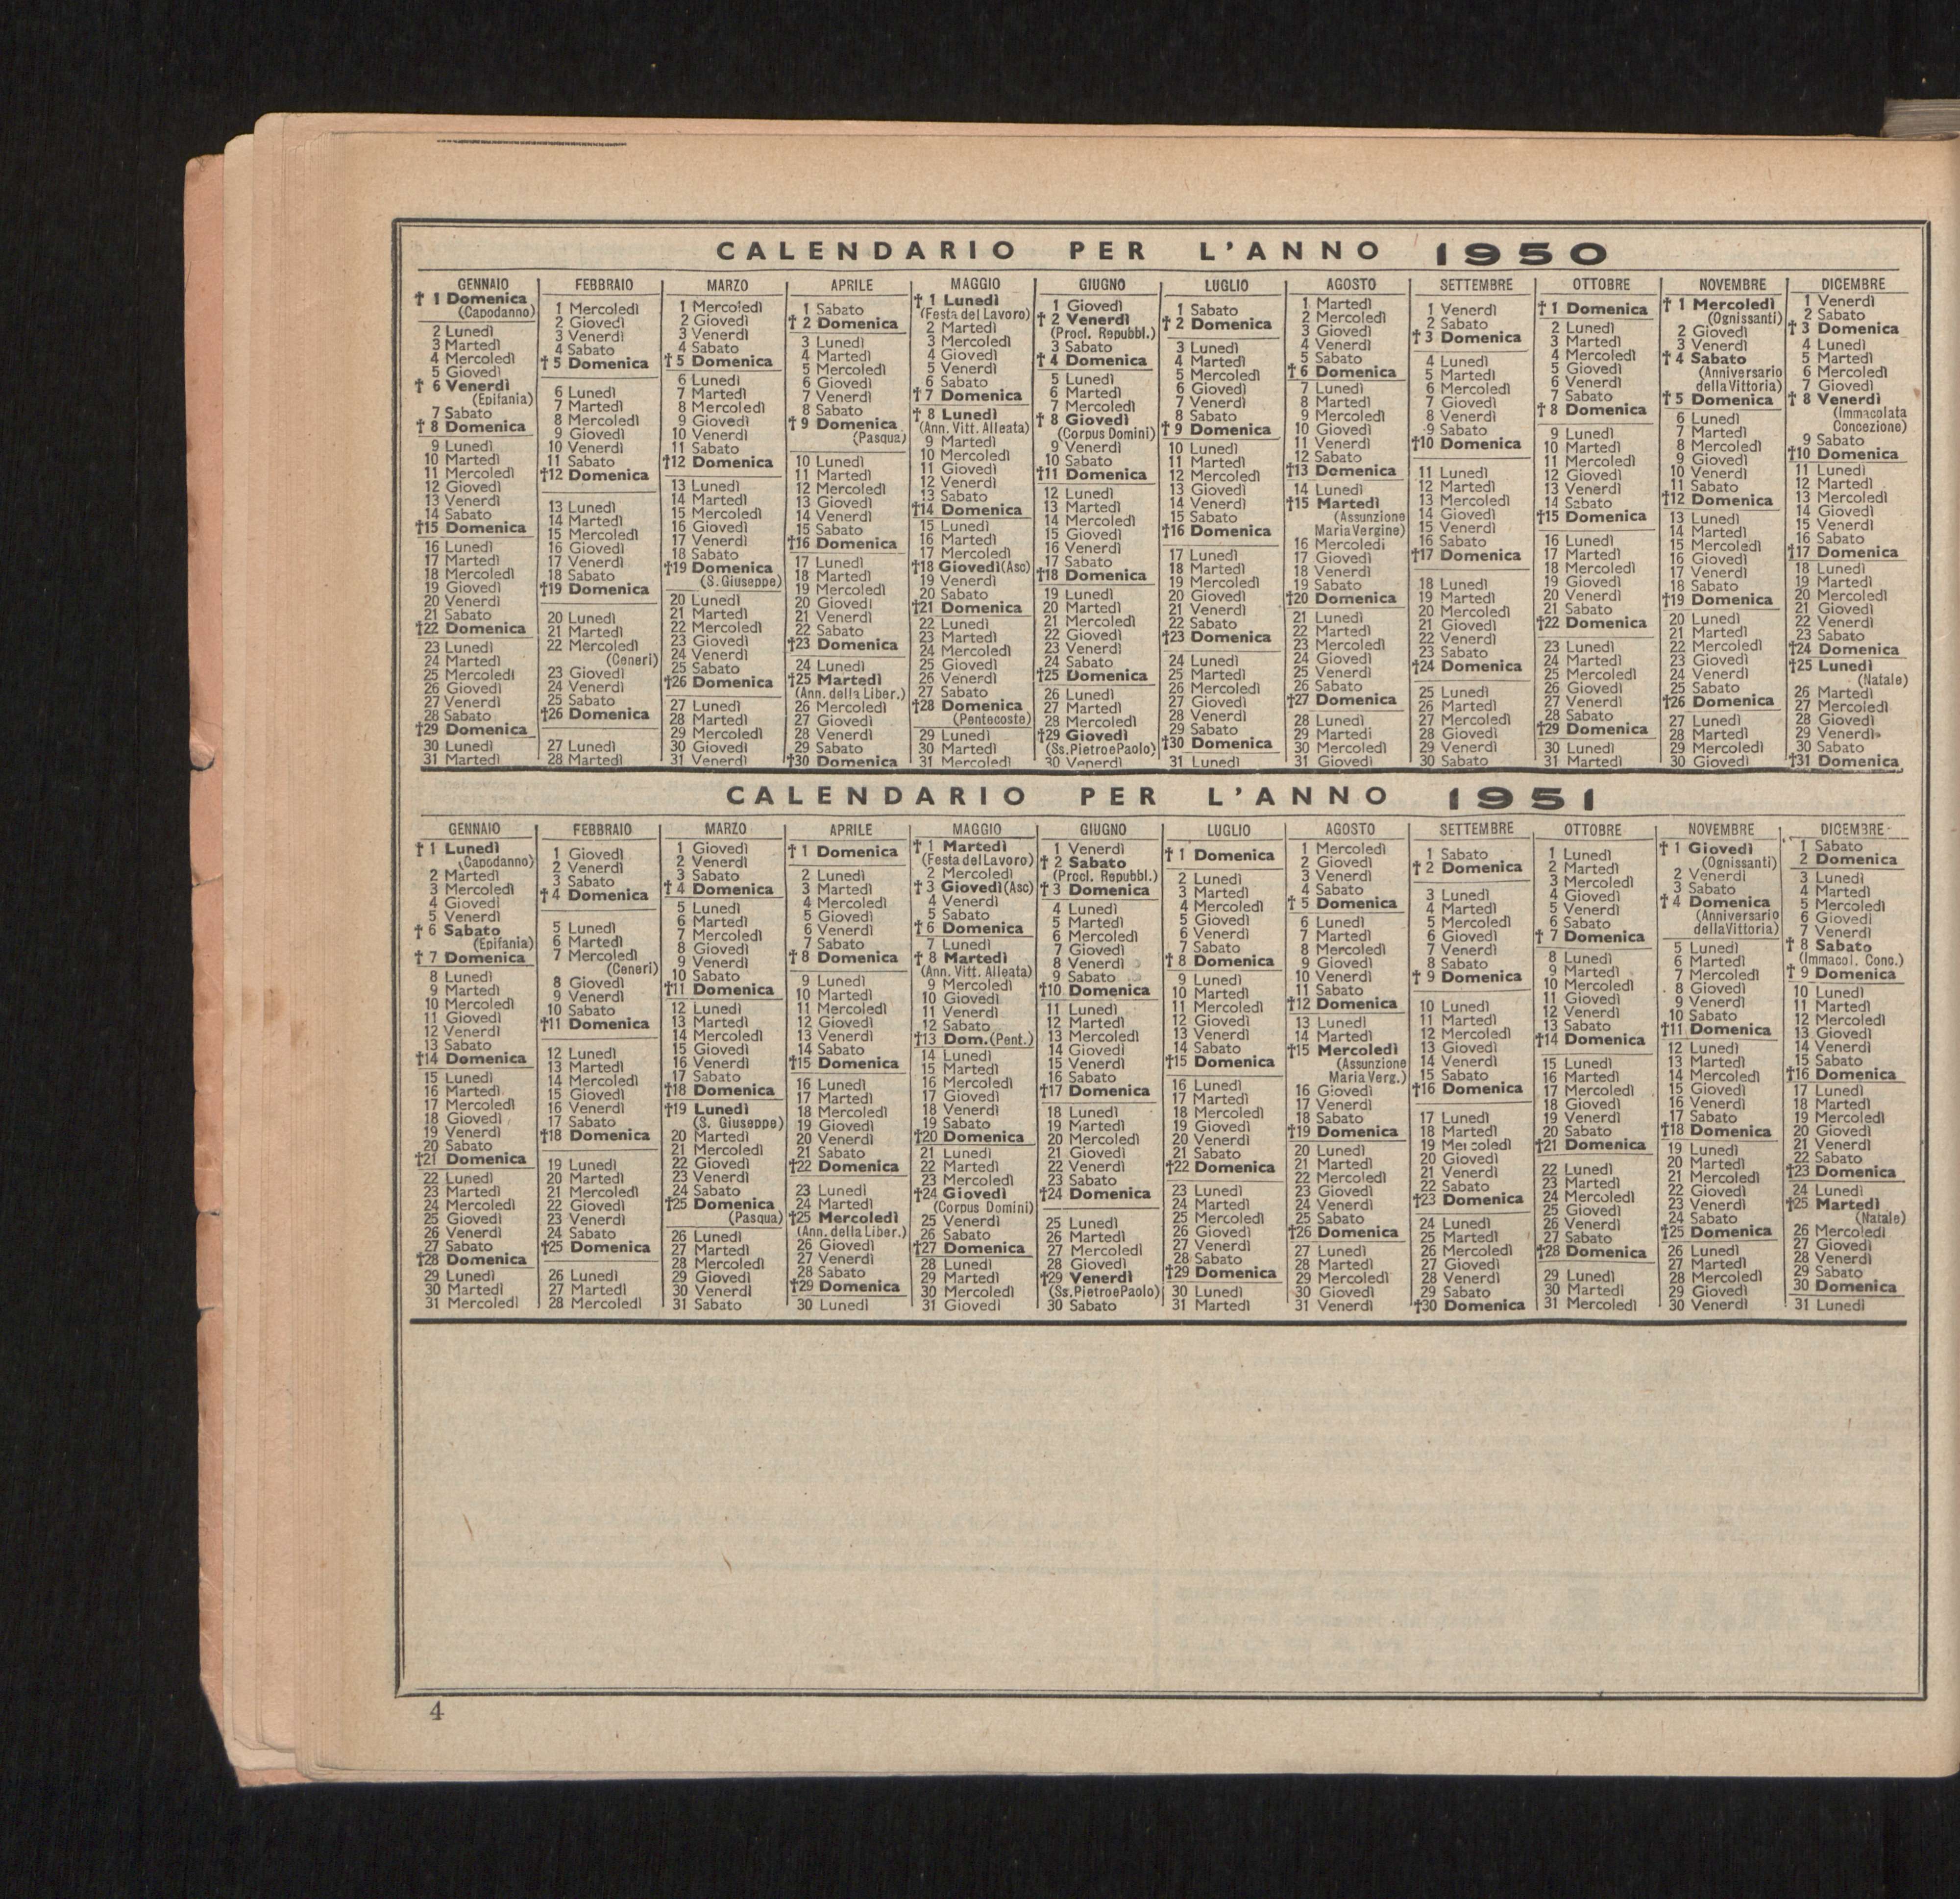 CALENDARIO PER L'ANNO 1950
GENNAIO
† 1 Domenica
(Capodanno)
2 Lunedì
3 Martedì
4 Mercoledì
5 Giovedì
† 6 Venerdì
(Epifania)
7 Sabato
† 8 Domenica
9 Lunedì
10 Martedì
11 Mercoledì
12 Giovedì
13 Venerdì
14 Sabato
†15 Domenica
16 Lunedì
17 Martedì
18 Mercoledì
19 Giovedì
20 Venerdì
21 Sabato
†22 Domenica
23 Lunedì
24 Martedì
25 Mercoledì
26 Giovedì
27 Venerdì
28 Sabato
†29 Domenica
30 Lunedì
31 Martedì
FEBBRAIO
1 Mercoledì
2 Giovedì
3 Venerdì
4 Sabato
† 5 Domenica
6 Lunedì
7 Martedì
8 Mercoledì
9 Giovedì
10 Venerdì
11 Sabato
†12 Domenica
13 Lunedì
14 Martedì
15 Mercoledì
16 Giovedì
17 Venerdì
18 Sabato
†19 Domenica
20 Lunedì
21 Martedì
22 Mercoledì
(Ceneri)
23 Giovedì
24 Venerdì
25 Sabato
†26 Domenica
27 Lunedì
28 Martedì
MARZO
1 Mercoledì
2 Giovedì
3 Venerdì
4 Sabato
† 5 Domenica
6 Lunedì
7 Martedì
8 Mercoledì
9 Giovedì
10 Venerdì
11 Sabato
†12 Domenica
13 Lunedì
14 Martedì
15 Mercoledì
16 Giovedì
17 Venerdì
18 Sabato
†19 Domenica
(S. Giuseppe)
20 Lunedì
21 Martedì
22 Mercoledì
23 Giovedì
24 Venerdì
25 Sabato
†26 Domenica
27 Lunedì
28 Martedì
29 Mercoledì
30 Giovedì
31 Venerdì
APRILE
1 Sabato
† 2 Domenica
3 Lunedì
4 Martedì
5 Mercoledì
6 Giovedì
7 Venerdì
8 Sabato
† 9 Domenica
(Pasqua)
10 Lunedì
11 Martedì
12 Mercoledì
13 Giovedì
14 Venerdì
15 Sabato
†16 Domenica
17 Lunedì
18 Martedì
19 Mercoledì
20 Giovedì
21 Venerdì
22 Sabato
†23 Domenica
24 Lunedì
†25 Martedì
(Ann. della Liber.)
26 Mercoledì
27 Giovedì
28 Venerdì
29 Sabato
†30 Domenica
MAGGIO
† 1 Lunedì
(Festa del Lavoro)
2 Martedì
3 Mercoledì
4 Giovedì
5 Venerdì
6 Sabato
† 7 Domenica
† 8 Lunedì
(Ann. Vitt. Alleata)
9 Martedì
10 Mercoledì
11 Giovedì
12 Venerdì
13 Sabato
†14 Domenica
15 Lunedì
16 Martedì
17 Mercoledì
†18 Giovedì (Asc)
19 Venerdì
20 Sabato
†21 Domenica
22 Lunedì
23 Martedì
24 Mercoledì
25 Giovedì
26 Venerdì
27 Sabato
†28 Domenica
(Pentecoste)
29 Lunedì
30 Martedì
31 Mercoledì
GIUGNO
1 Giovedì
† 2 Venerdì
(Procl. Repubbl.)
3 Sabato
† 4 Domenica
5 Lunedì
6 Martedì
7 Mercoledì
† 8 Giovedì
(Corpus Domini)
9 Venerdì
10 Sabato
†11 Domenica
12 Lunedì
13 Martedì
14 Mercoledì
15 Giovedì
16 Venerdì
17 Sabato
†18 Domenica
19 Lunedì
20 Martedì
21 Mercoledì
22 Giovedì
23 Venerdì
24 Sabato
†25 Domenica
26 Lunedì
27 Martedì
28 Mercoledì
†29 Giovedì
(Ss. Pietro e Paolo)
30 Venerdì
LUGLIO
1 Sabato
† 2 Domenica
3 Lunedì
4 Martedì
5 Mercoledì
6 Giovedì
7 Venerdì
8 Sabato
† 9 Domenica
10 Lunedì
11 Martedì
12 Mercoledì
13 Giovedì
14 Venerdì
15 Sabato
†16 Domenica
17 Lunedì
18 Martedì
19 Mercoledì
20 Giovedì
21 Venerdì
22 Sabato
†23 Domenica
24 Lunedì
25 Martedì
26 Mercoledì
27 Giovedì
28 Venerdì
29 Sabato
†30 Domenica
31 Lunedì
AGOSTO
1 Martedì
2 Mercoledì
3 Giovedì
4 Venerdì
5 Sabato
† 6 Domenica
7 Lunedì
8 Martedì
9 Mercoledì
10 Giovedì
11 Venerdì
12 Sabato
†13 Domenica
14 Lunedì
†15 Martedì
(Assunzione
Maria Vergine)
16 Mercoledì
17 Giovedì
18 Venerdì
19 Sabato
†20 Domenica
21 Lunedì
22 Martedì
23 Mercoledì
24 Giovedì
25 Venerdì
26 Sabato
†27 Domenica
28 Lunedì
29 Martedì
30 Mercoledì
31 Giovedì
SETTEMBRE
1 Venerdì
2 Sabato
† 3 Domenica
4 Lunedì
5 Martedì
6 Mercoledì
7 Giovedì
8 Venerdì
9 Sabato
†10 Domenica
11 Lunedì
12 Martedì
13 Mercoledì
14 Giovedì
15 Venerdì
16 Sabato
†17 Domenica
18 Lunedì
19 Martedì
20 Mercoledì
21 Giovedì
22 Venerdì
23 Sabato
†24 Domenica
25 Lunedì
26 Martedì
27 Mercoledì
28 Giovedì
29 Venerdì
30 Sabato
OTTOBRE
† 1 Domenica
2 Lunedì
3 Martedì
4 Mercoledì
5 Giovedì
6 Venerdì
7 Sabato
† 8 Domenica
9 Lunedì
10 Martedì
11 Mercoledì
12 Giovedì
13 Venerdì
14 Sabato
†15 Domenica
16 Lunedì
17 Martedì
18 Mercoledì
19 Giovedì
20 Venerdì
21 Sabato
†22 Domenica
23 Lunedì
24 Martedì
25 Mercoledì
26 Giovedì
27 Venerdì
28 Sabato
†29 Domenica
30 Lunedì
31 Martedì
NOVEMBRE
† 1 Mercoledì
(Ognissanti)
2 Giovedì
3 Venerdì
† 4 Sabato
(Anniversario
della Vittoria)
† 5 Domenica
6 Lunedì
7 Martedì
8 Mercoledì
9 Giovedì
10 Venerdì
11 Sabato
†12 Domenica
13 Lunedì
14 Martedì
15 Mercoledì
16 Giovedì
17 Venerdì
18 Sabato
†19 Domenica
20 Lunedì
21 Martedì
22 Mercoledì
23 Giovedì
24 Venerdì
25 Sabato
†26 Domenica
27 Lunedì
28 Martedì
29 Mercoledì
30 Giovedì
DICEMBRE
1 Venerdì
2 Sabato
† 3 Domenica
4 Lunedì
5 Martedì
6 Mercoledì
7 Giovedì
† 8 Venerdì
(Immacolata
Concezione)
9 Sabato
†10 Domenica
11 Lunedì
12 Martedì
13 Mercoledì
14 Giovedì
15 Venerdì
16 Sabato
†17 Domenica
18 Lunedì
19 Martedì
20 Mercoledì
21 Giovedì
22 Venerdì
23 Sabato
†24 Domenica
†25 Lunedì
(Natale)
26 Martedì
27 Mercoledì
28 Giovedì
29 Venerdì
30 Sabato
†31 Domenica
CALENDARIO PER L'ANNO 1951
GENNAIO
† 1 Lunedì
(Capodanno)
2 Martedì
3 Mercoledì
4 Giovedì
5 Venerdì
† 6 Sabato
(Epifania)
† 7 Domenica
8 Lunedì
9 Martedì
10 Mercoledì
11 Giovedì
12 Venerdì
13 Sabato
†14 Domenica
15 Lunedì
16 Martedì
17 Mercoledì
18 Giovedì
19 Venerdì
20 Sabato
†21 Domenica
22 Lunedì
23 Martedì
24 Mercoledì
25 Giovedì
26 Venerdì
27 Sabato
†28 Domenica
29 Lunedì
30 Martedì
31 Mercoledì
FEBBRAIO
1 Giovedì
2 Venerdì
3 Sabato
† 4 Domenica
5 Lunedì
6 Martedì
7 Mercoledì
(Ceneri)
8 Giovedì
9 Venerdì
10 Sabato
†11 Domenica
12 Lunedì
13 Martedì
14 Mercoledì
15 Giovedì
16 Venerdì
17 Sabato
†18 Domenica
19 Lunedì
20 Martedì
21 Mercoledì
22 Giovedì
23 Venerdì
24 Sabato
†25 Domenica
26 Lunedì
27 Martedì
28 Mercoledì
MARZO
1 Giovedì
2 Venerdì
3 Sabato
† 4 Domenica
5 Lunedì
6 Martedì
7 Mercoledì
8 Giovedì
9 Venerdì
10 Sabato
†11 Domenica
12 Lunedì
13 Martedì
14 Mercoledì
15 Giovedì
16 Venerdì
17 Sabato
†18 Domenica
†19 Lunedì
(S. Giuseppe)
20 Martedì
21 Mercoledì
22 Giovedì
23 Venerdì
24 Sabato
†25 Domenica
(Pasqua)
26 Lunedì
27 Martedì
28 Mercoledì
29 Giovedì
30 Venerdì
31 Sabato
APRILE
† 1 Domenica
2 Lunedì
3 Martedì
4 Mercoledì
5 Giovedì
6 Venerdì
7 Sabato
† 8 Domenica
9 Lunedì
10 Martedì
11 Mercoledì
12 Giovedì
13 Venerdì
14 Sabato
†15 Domenica
16 Lunedì
17 Martedì
18 Mercoledì
19 Giovedì
20 Venerdì
21 Sabato
†22 Domenica
23 Lunedì
24 Martedì
†25 Mercoledì
(Ann. della Liber.)
26 Giovedì
27 Venerdì
28 Sabato
†29 Domenica
30 Lunedì
MAGGIO
† 1 Martedì
(Festa del Lavoro)
2 Mercoledì
† 3 Giovedì (Asc)
4 Venerdì
5 Sabato
† 6 Domenica
7 Lunedì
† 8 Martedì
(Ann. Vitt. Alleata)
9 Mercoledì
10 Giovedì
11 Venerdì
12 Sabato
†13 Dom. (Pent.)
14 Lunedì
15 Martedì
16 Mercoledì
17 Giovedì
18 Venerdì
19 Sabato
†20 Domenica
21 Lunedì
22 Martedì
23 Mercoledì
†24 Giovedì
(Corpus Domini)
25 Venerdì
26 Sabato
†27 Domenica
28 Lunedì
29 Martedì
30 Mercoledì
31 Giovedì
GIUGNO
1 Venerdì
† 2 Sabato
(Procl. Repubbl.)
† 3 Domenica
4 Lunedì
5 Martedì
6 Mercoledì
7 Giovedì
8 Venerdì
9 Sabato
†10 Domenica
11 Lunedì
12 Martedì
13 Mercoledì
14 Giovedì
15 Venerdì
16 Sabato
†17 Domenica
18 Lunedì
19 Martedì
20 Mercoledì
21 Giovedì
22 Venerdì
23 Sabato
†24 Domenica
25 Lunedì
26 Martedì
27 Mercoledì
28 Giovedì
†29 Venerdì
(Ss. Pietro e Paolo)
30 Sabato
LUGLIO
† 1 Domenica
2 Lunedì
3 Martedì
4 Mercoledì
5 Giovedì
6 Venerdì
7 Sabato
† 8 Domenica
9 Lunedì
10 Martedì
11 Mercoledì
12 Giovedì
13 Venerdì
14 Sabato
†15 Domenica
16 Lunedì
17 Martedì
18 Mercoledì
19 Giovedì
20 Venerdì
21 Sabato
†22 Domenica
23 Lunedì
24 Martedì
25 Mercoledì
26 Giovedì
27 Venerdì
28 Sabato
†29 Domenica
30 Lunedì
31 Martedì
AGOSTO
1 Mercoledì
2 Giovedì
3 Venerdì
4 Sabato
† 5 Domenica
6 Lunedì
7 Martedì
8 Mercoledì
9 Giovedì
10 Venerdì
11 Sabato
†12 Domenica
13 Lunedì
14 Martedì
†15 Mercoledì
(Assunzione
Maria Verg.)
16 Giovedì
17 Venerdì
18 Sabato
†19 Domenica
20 Lunedì
21 Martedì
22 Mercoledì
23 Giovedì
24 Venerdì
25 Sabato
†26 Domenica
27 Lunedì
28 Martedì
29 Mercoledì
30 Giovedì
31 Venerdì
SETTEMBRE
1 Sabato
† 2 Domenica
3 Lunedì
4 Martedì
5 Mercoledì
6 Giovedì
7 Venerdì
8 Sabato
† 9 Domenica
10 Lunedì
11 Martedì
12 Mercoledì
13 Giovedì
14 Venerdì
15 Sabato
†16 Domenica
17 Lunedì
18 Martedì
19 Mercoledì
20 Giovedì
21 Venerdì
22 Sabato
†23 Domenica
24 Lunedì
25 Martedì
26 Mercoledì
27 Giovedì
28 Venerdì
29 Sabato
†30 Domenica
OTTOBRE
1 Lunedì
2 Martedì
3 Mercoledì
4 Giovedì
5 Venerdì
6 Sabato
† 7 Domenica
8 Lunedì
9 Martedì
10 Mercoledì
11 Giovedì
12 Venerdì
13 Sabato
†14 Domenica
15 Lunedì
16 Martedì
17 Mercoledì
18 Giovedì
19 Venerdì
20 Sabato
†21 Domenica
22 Lunedì
23 Martedì
24 Mercoledì
25 Giovedì
26 Venerdì
27 Sabato
†28 Domenica
29 Lunedì
30 Martedì
31 Mercoledì
NOVEMBRE
† 1 Giovedì
(Ognissanti)
2 Venerdì
3 Sabato
† 4 Domenica
(Anniversario
della Vittoria)
5 Lunedì
6 Martedì
7 Mercoledì
8 Giovedì
9 Venerdì
10 Sabato
†11 Domenica
12 Lunedì
13 Martedì
14 Mercoledì
15 Giovedì
16 Venerdì
17 Sabato
†18 Domenica
19 Lunedì
20 Martedì
21 Mercoledì
22 Giovedì
23 Venerdì
24 Sabato
†25 Domenica
26 Lunedì
27 Martedì
28 Mercoledì
29 Giovedì
30 Venerdì
DICEMBRE
1 Sabato
2 Domenica
3 Lunedì
4 Martedì
5 Mercoledì
6 Giovedì
7 Venerdì
† 8 Sabato
(Immacol. Conc.)
† 9 Domenica
10 Lunedì
11 Martedì
12 Mercoledì
13 Giovedì
14 Venerdì
15 Sabato
†16 Domenica
17 Lunedì
18 Martedì
19 Mercoledì
20 Giovedì
21 Venerdì
22 Sabato
†23 Domenica
24 Lunedì
†25 Martedì
(Natale)
26 Mercoledì
27 Giovedì
28 Venerdì
29 Sabato
30 Domenica
31 Lunedì
4